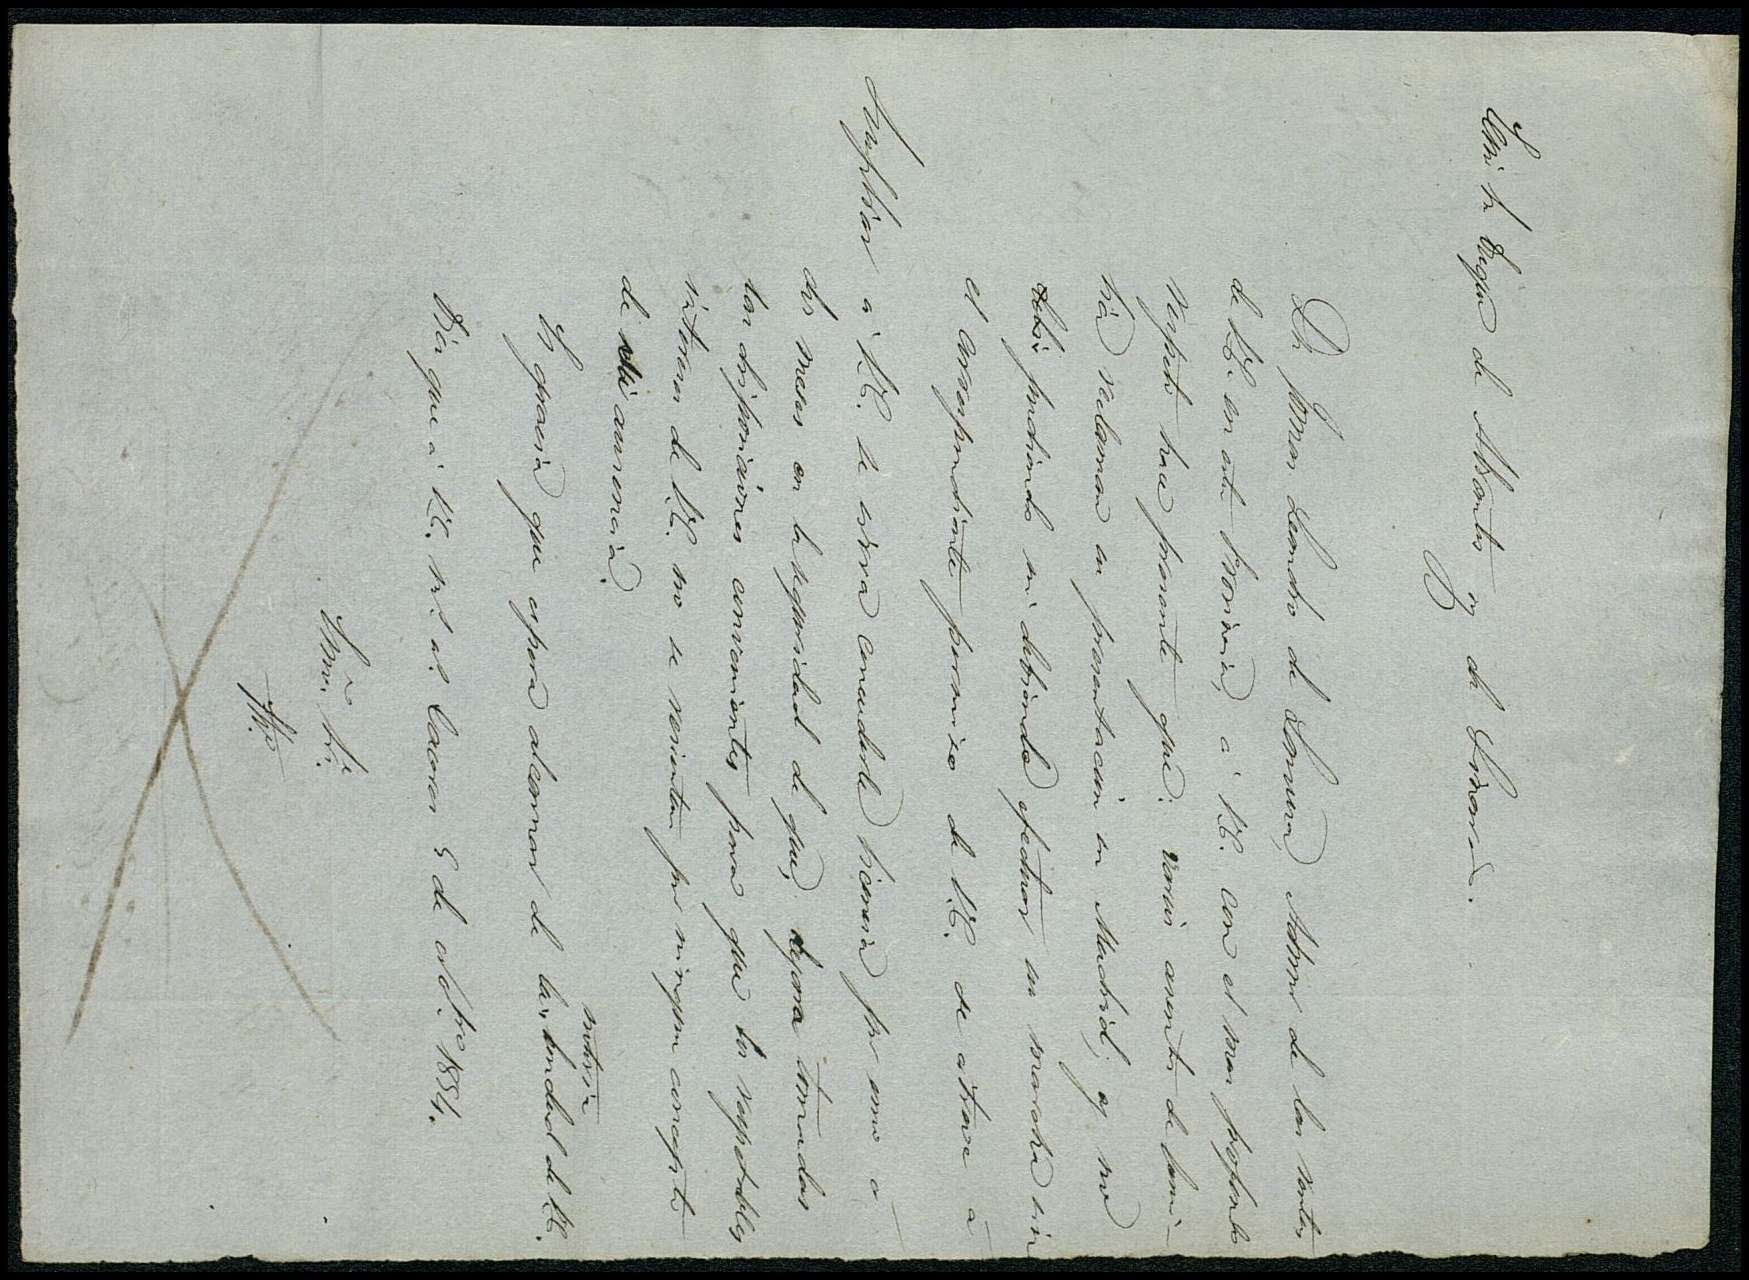 Exmo Sr Duque de Abrantes y de Linares.
Dn Juan Leandro de Lomura, Admor de las rentas
de V.E. en esta Provincia, a V.E. con el mas profundo
respeto hace presente que: varios asuntos de fami-
lia reclaman su presentacion en Madrid, y no
pudiendo ni debiendo efectuar su marcha sin
el correspondiente permiso de V.E. se atreve á
Suplicar á V.E. se sirva concederle licencia por uno ó
dos meses en la seguridad de que, dejara tomadas
las disposiciones convenientes para que los respetables
intereses de V.E. no se resientan por ningun concepto
de mi ausencia.
Es gracia que espera alcanzar de la notoria bondad de V.E.
Dios gue á V.E. ms. as. Caceres 5 de Nobre 1854.
Exmo. Sor.